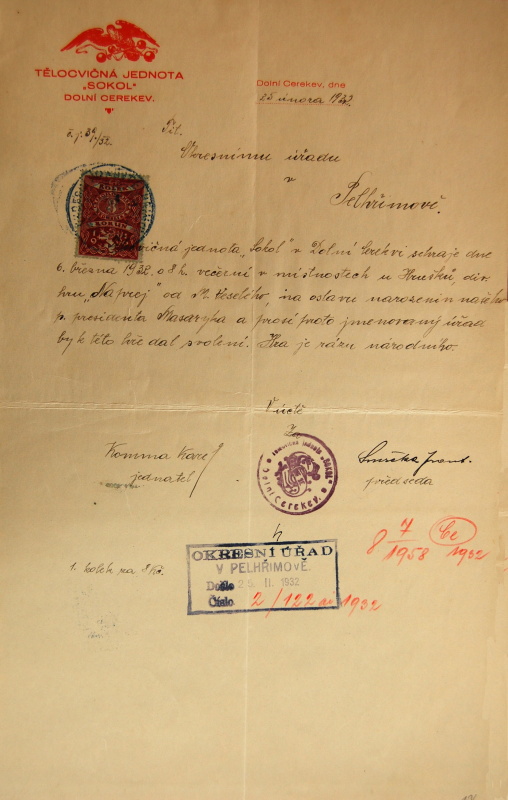 TĚLOCVIČNÁ JEDNOTA
„SOKOL"
DOLNÍ CEREKEV.
Dolní Cerekev, dne
25 února 1932.
Okresnímu úřadu
v
Pelhřimově.
KOLEK
jednota „Sokol" v Dolní Cerekvi sehraje dne
6. března 1932. o 8 h. večerní v místnostech u Hrušků, div.
hru „Naproj" od Veselého, na oslavu narozenin našeho
p. presidenta Masaryka a prosí proto jmenovaný úřad
by k této hře dal svolení. Hra je rázu národního.
V úctě
Za
Komma Karel
jednatel
předseda
Tělocvičná jednota „SOKOL"
Dolní Cerekev.
8 7/1958 1932
1. kolek za
OKRESNÍ ÚŘAD
V PELHŘIMOVĚ.
Došlo 25. II. 1932
Číslo 2/122 ai 1932